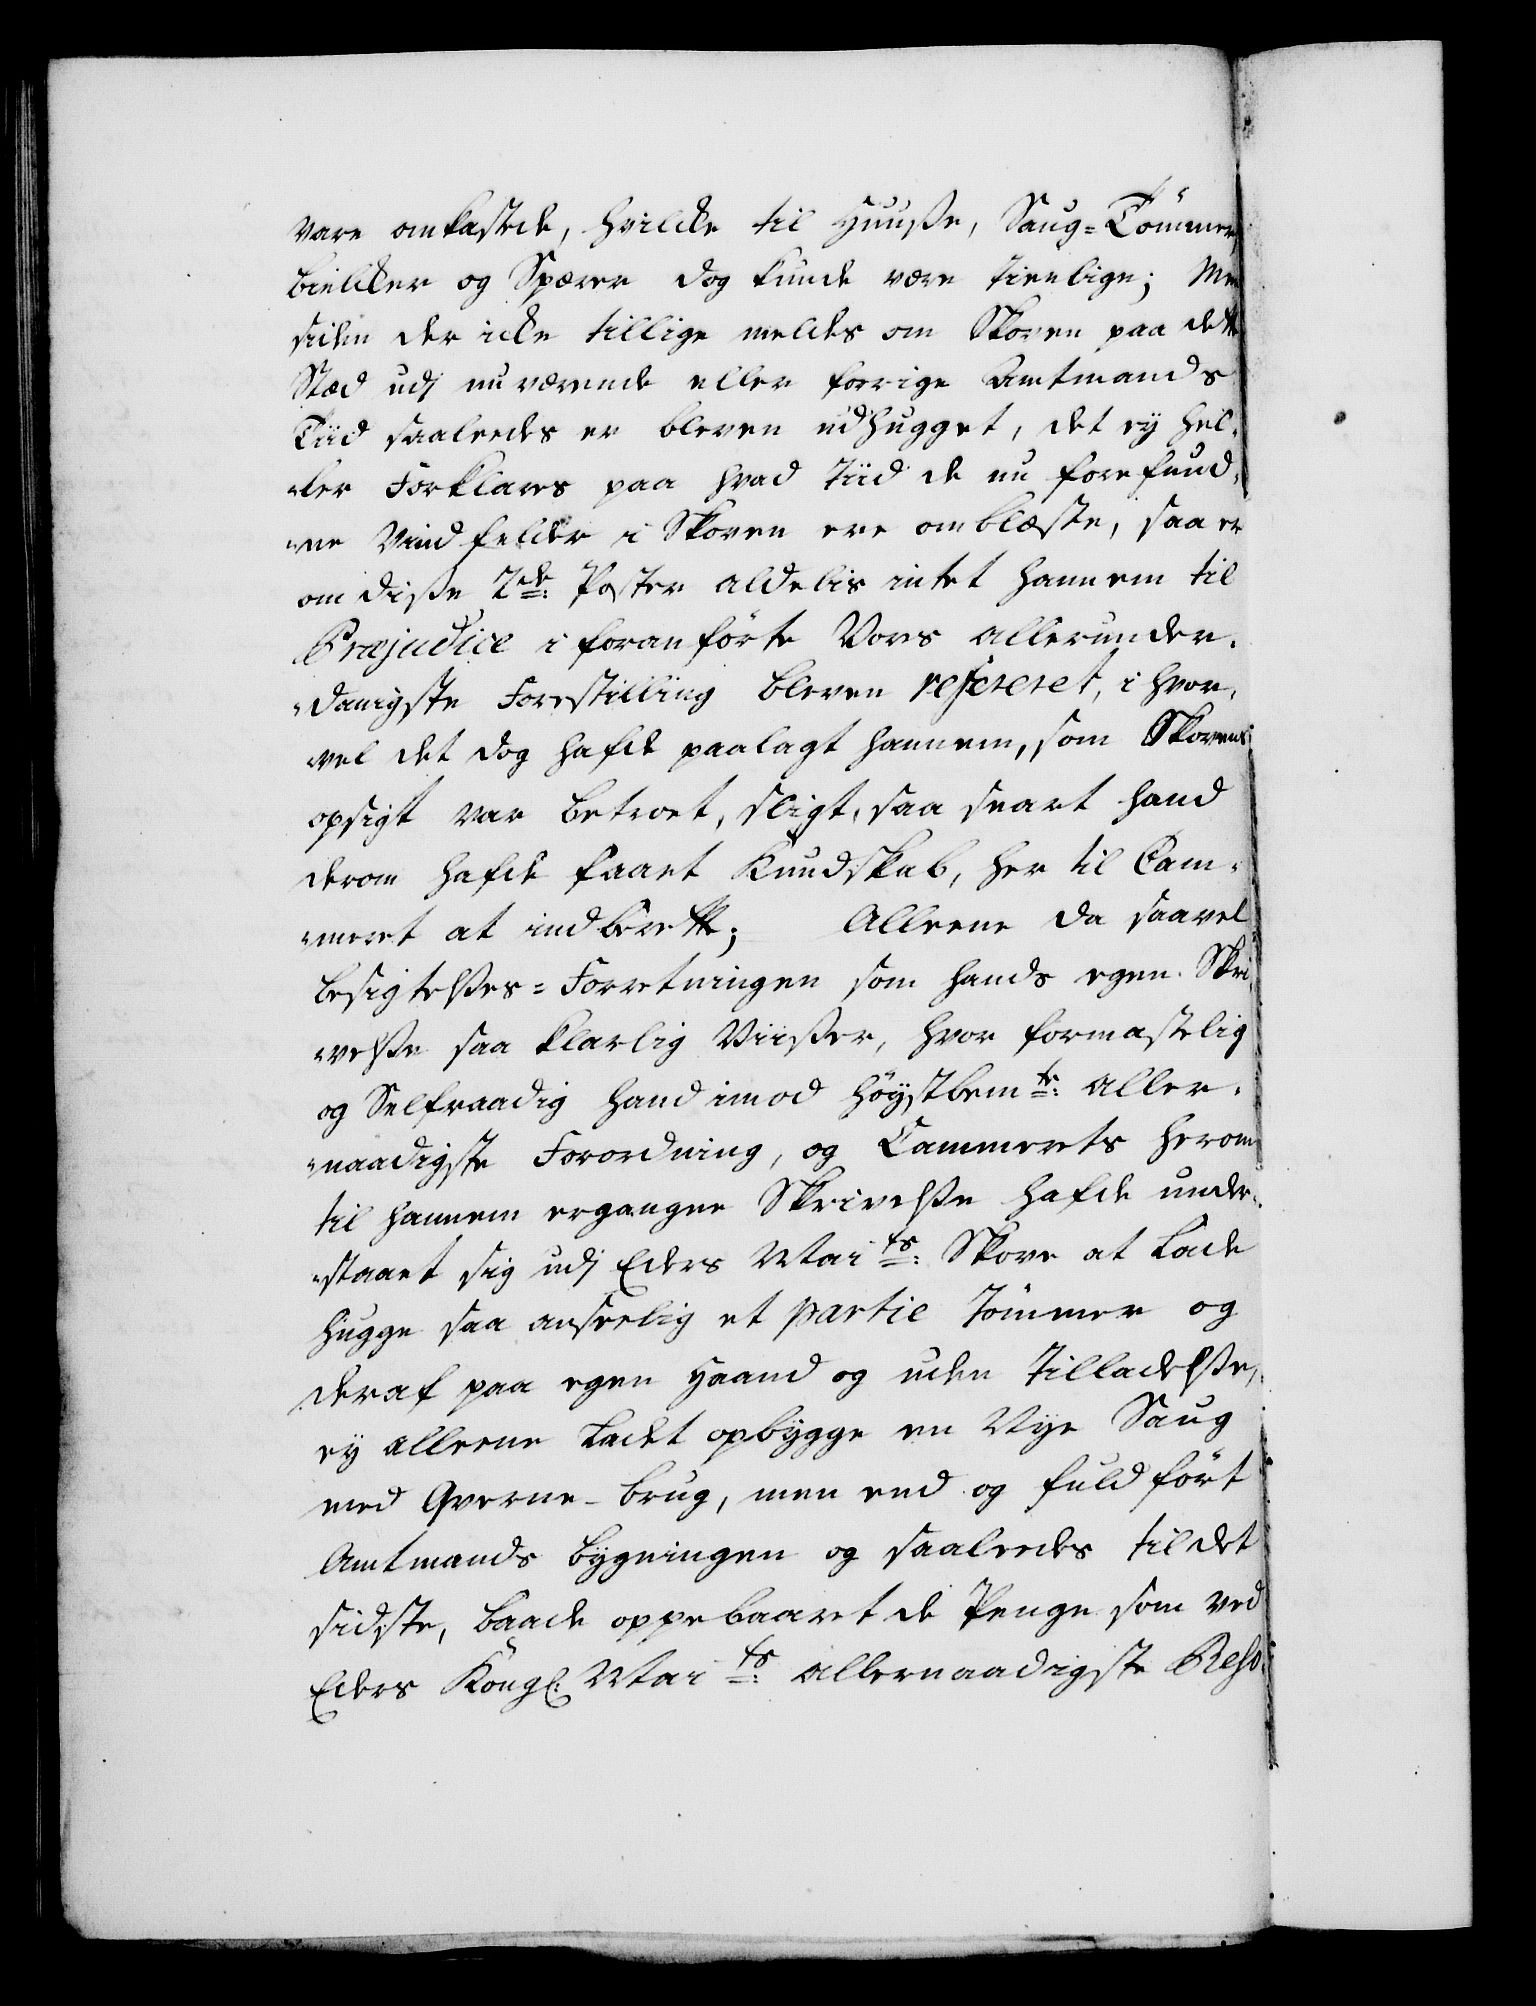 vare omkastede, hvilcke til Huuße, Saug=Tömmer
bielcker og Sparrer dog kunde være tienlige; Men
siden der icke tillige meldes om Skoven paa dette
Stæd udj nuværende eller forrige Amtmands
Tiid saaleedes er bleven udhugget, det ey hel¬
ler Forklares paa hvad Tiid de nu forefund¬
ne Vindfelder i Skoven ere omblæste, saa er
om diße 2de: Poster aldelis intet hannem til
Præjudice i foranförte Vores allerunder¬
danigste Forestilling bleven refereret, i hvor¬
vel det dog hafde paalagt hannem, som Skovens
opsigt var betroet, sligt, saa snart hand
derom hafde faaet Kundskab, her til Cam¬
meret at indberette; Alleene da saavel
besigtelßes=Forretningen som hands egen Skri¬
velße saa klarlig Viißer, hvor formastelig
og Selfraadig hand imod höystbemte: Aller¬
naadigste Forordning, og Cammerets herom
til hannem ergangne Skrivelße hafde under¬
staaet sig udj Eders Maits: Skove at lade
hugge saa anseelig et partie Tömmer og
deraf paa egen Haand og uden Tilladelße,
ey alleene ladet opbygge en Nye Saug
med Qverne-brug, men end og fuldfört
Amtmands bygningen og saaleedes til det
sidste, baade oppebaaret de Penge som ved
Eders Kongl: Maits: allernaadigste Reso¬